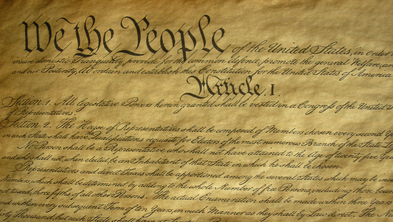 We the People of the United States, in Order
insure domestic Tranquility, provide for the common defence, promote the general Welfare, and
and our Posterity, do ordain and establish this Constitution for the United States of America
Article I
Section 1. All legislative Powers herein granted shall be vested in a Congress of the United
Representatives.
Section 2. The House of Representatives shall be composed of Members chosen every second Year
in each State shall have Qualifications requisite for Electors of the most numerous Branch of the State
No Person shall be a Representative who shall not have attained to the Age of twenty five Years
and who shall not, when elected, be an Inhabitant of that State in which he shall be chosen.
Representatives and direct Taxes shall be apportioned among the several States which may be
which shall be determined by adding to the whole Number of free Persons, including those bound
The actual Enumeration shall be made within three Years
within every subsequent Term of ten Years, in such Manner as they shall by Law direct. The
thirty Thousand, but each State shall